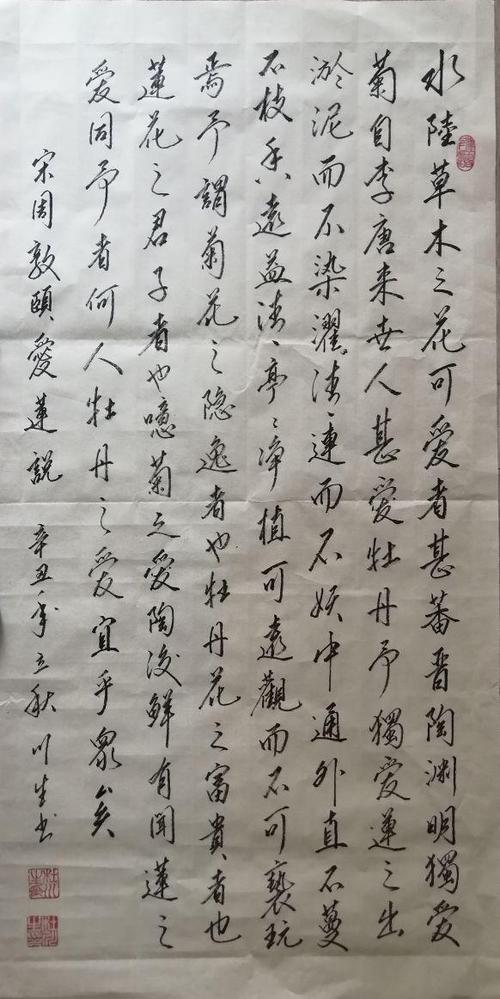 水陸草木之花可愛者甚蕃晋陶渊明獨愛
菊自李唐来世人甚爱牡丹予獨爱蓮之出
淤泥而不染濯清漣而不妖中通外直不蔓
不枝香遠益清亭亭净植可遠觀而不可褻玩
焉予謂菊花之隐逸者也牡丹花之富貴者也
蓮花之君子者也噫菊之愛陶後鲜有聞蓮之
愛同予者何人牡丹之爱宜乎衆矣
宋周敦頤愛蓮説 辛丑年立秋川生书